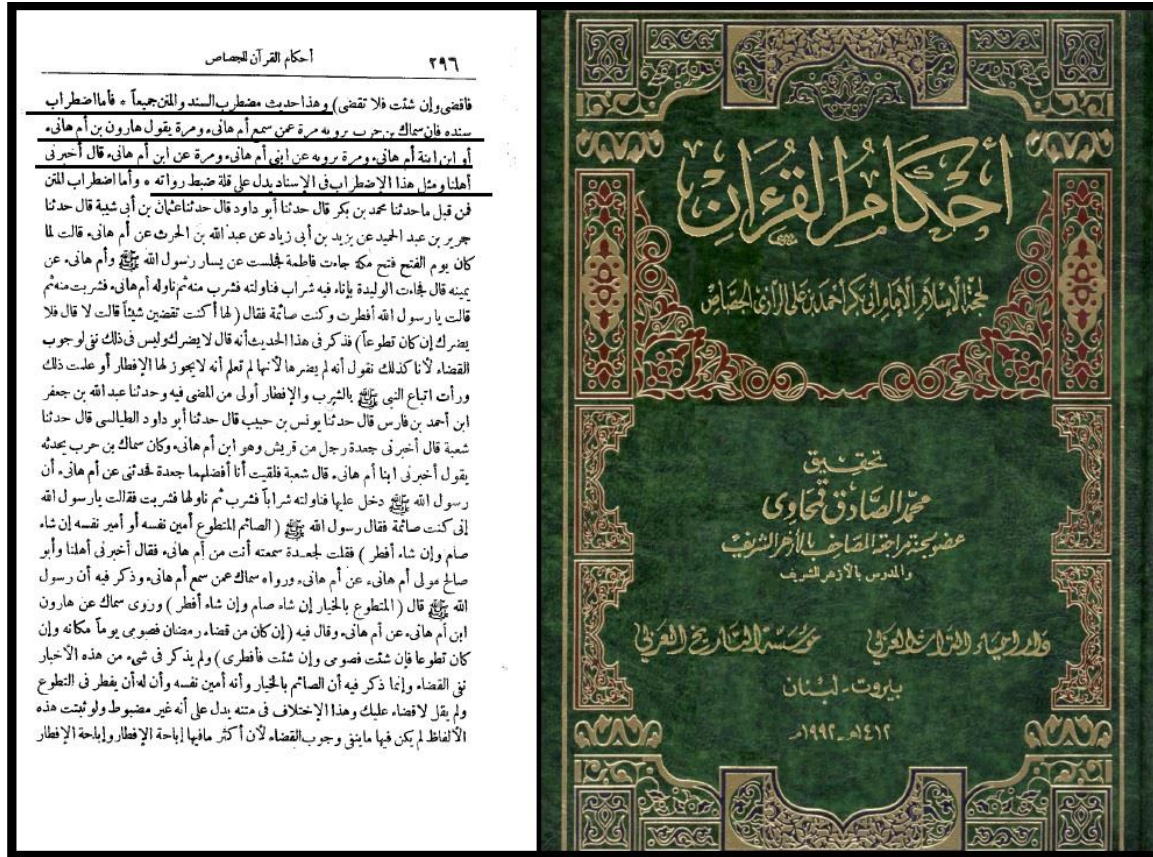 أحكام القرآن للجصاص
٢٩٦
فاقضى وإن شئت فلا تقضى) وهذا حديث مضطرب السند والمتن جميعاً * فأما اضطراب
سنده فإن سماك بن حرب يرويه مرة عمن سمع أم هانىء ومرة يقول هارون بن أم هانىء
أو ابن ابنة أم هانىء ومرة يرويه عن ابنى أم هانىء ومرة عن ابن أم هانىء قال أخبرنى
أهلنا ومثل هذا الاضطراب فى الإسناد يدل على قلة ضبط رواته * وأما اضطراب المتن
فمن قبل ما حدثنا محمد بن بكر قال حدثنا أبو داود قال حدثنا عثمان بن أبى شيبة قال حدثنا
جرير بن عبد الحميد عن يزيد بن أبى زياد عن عبد الله بن الحرث عن أم هانىء قالت لما
كان يوم الفتح فتح مكة جاءت فاطمة فجلست عن يسار رسول الله ﷺ وأم هانىء عن
يمينه قال فجاءت الوليدة بإناء فيه شراب فناولته فشرب منه ثم ناوله أم هانىء فشربت منه ثم
قالت يا رسول الله أفطرت وكنت صائمة فقال (لها أكنت تقضين شيئاً قالت لا قال فلا
يضرك إن كان تطوعاً) فذكر فى هذا الحديث أنه قال لا يضرك وليس فى ذلك نفى لوجوب
القضاء لأنا كذلك نقول أنه لم يضرها لأنها لم تعلم أنه لا يجوز لها الإفطار أو علمت ذلك
ورأت اتباع النبى ﷺ بالشرب والإفطار أولى من المضى فيه وحدثنا عبد الله بن جعفر
ابن أحمد بن فارس قال حدثنا يونس بن حبيب قال حدثنا أبو داود الطيالسى قال حدثنا
شعبة قال أخبرنى جعدة رجل من قريش وهو ابن أم هانىء وكان سماك بن حرب يحدثه
يقول أخبرنى ابنا أم هانىء قال شعبة فلقيت أنا أفضلهما جعدة فحدثنى عن أم هانىء أن
رسول الله ﷺ دخل عليها فناولته شراباً فشرب ثم ناولها فشربت فقالت يا رسول الله
إنى كنت صائمة فقال رسول الله ﷺ (الصائم المتطوع أمين نفسه أو أمير نفسه إن شاء
صام وإن شاء أفطر) فقلت لجعدة سمعته أنت من أم هانىء فقال أخبرنى أهلنا وأبو
صالح مولى أم هانىء عن أم هانىء ورواه سماك عمن سمع أم هانىء وذكر فيه أن رسول
الله ﷺ قال (المتطوع بالخيار إن شاء صام وإن شاء أفطر) وروى سماك عن هارون
ابن أم هانىء عن أم هانىء وقال فيه (إن كان من قضاء رمضان فصومى يوماً مكانه وإن
كان تطوعا فإن شئت فصومى وإن شئت فأفطرى) ولم يذكر فى شىء من هذه الأخبار
نفى القضاء وإنما ذكر فيه أن الصائم بالخيار وأنه أمين نفسه وأن له أن يفطر فى التطوع
ولم يقل لا قضاء عليك وهذا الإختلاف فى متنه يدل على أنه غير مضبوط ولو ثبتت هذه
الألفاظ لم يكن فيها ما ينفى وجوب القضاء لأن أكثر ما فيها إباحة الإفطار وإباحة الإفطار
أحكام القرءان
لحجة الإسلام الإمام أبى بكر أحمد بن على الرازى الجصاص
تحقيق
محمد الصادق قمحاوى
عضو لجنة مراجعة المصاحف بالأزهر الشريف
والمدرس بالأزهر الشريف
دار احياء التراث العربى
مؤسسة التاريخ العربى
بيروت - لبنان
١٤١٢هـ - ١٩٩٢م